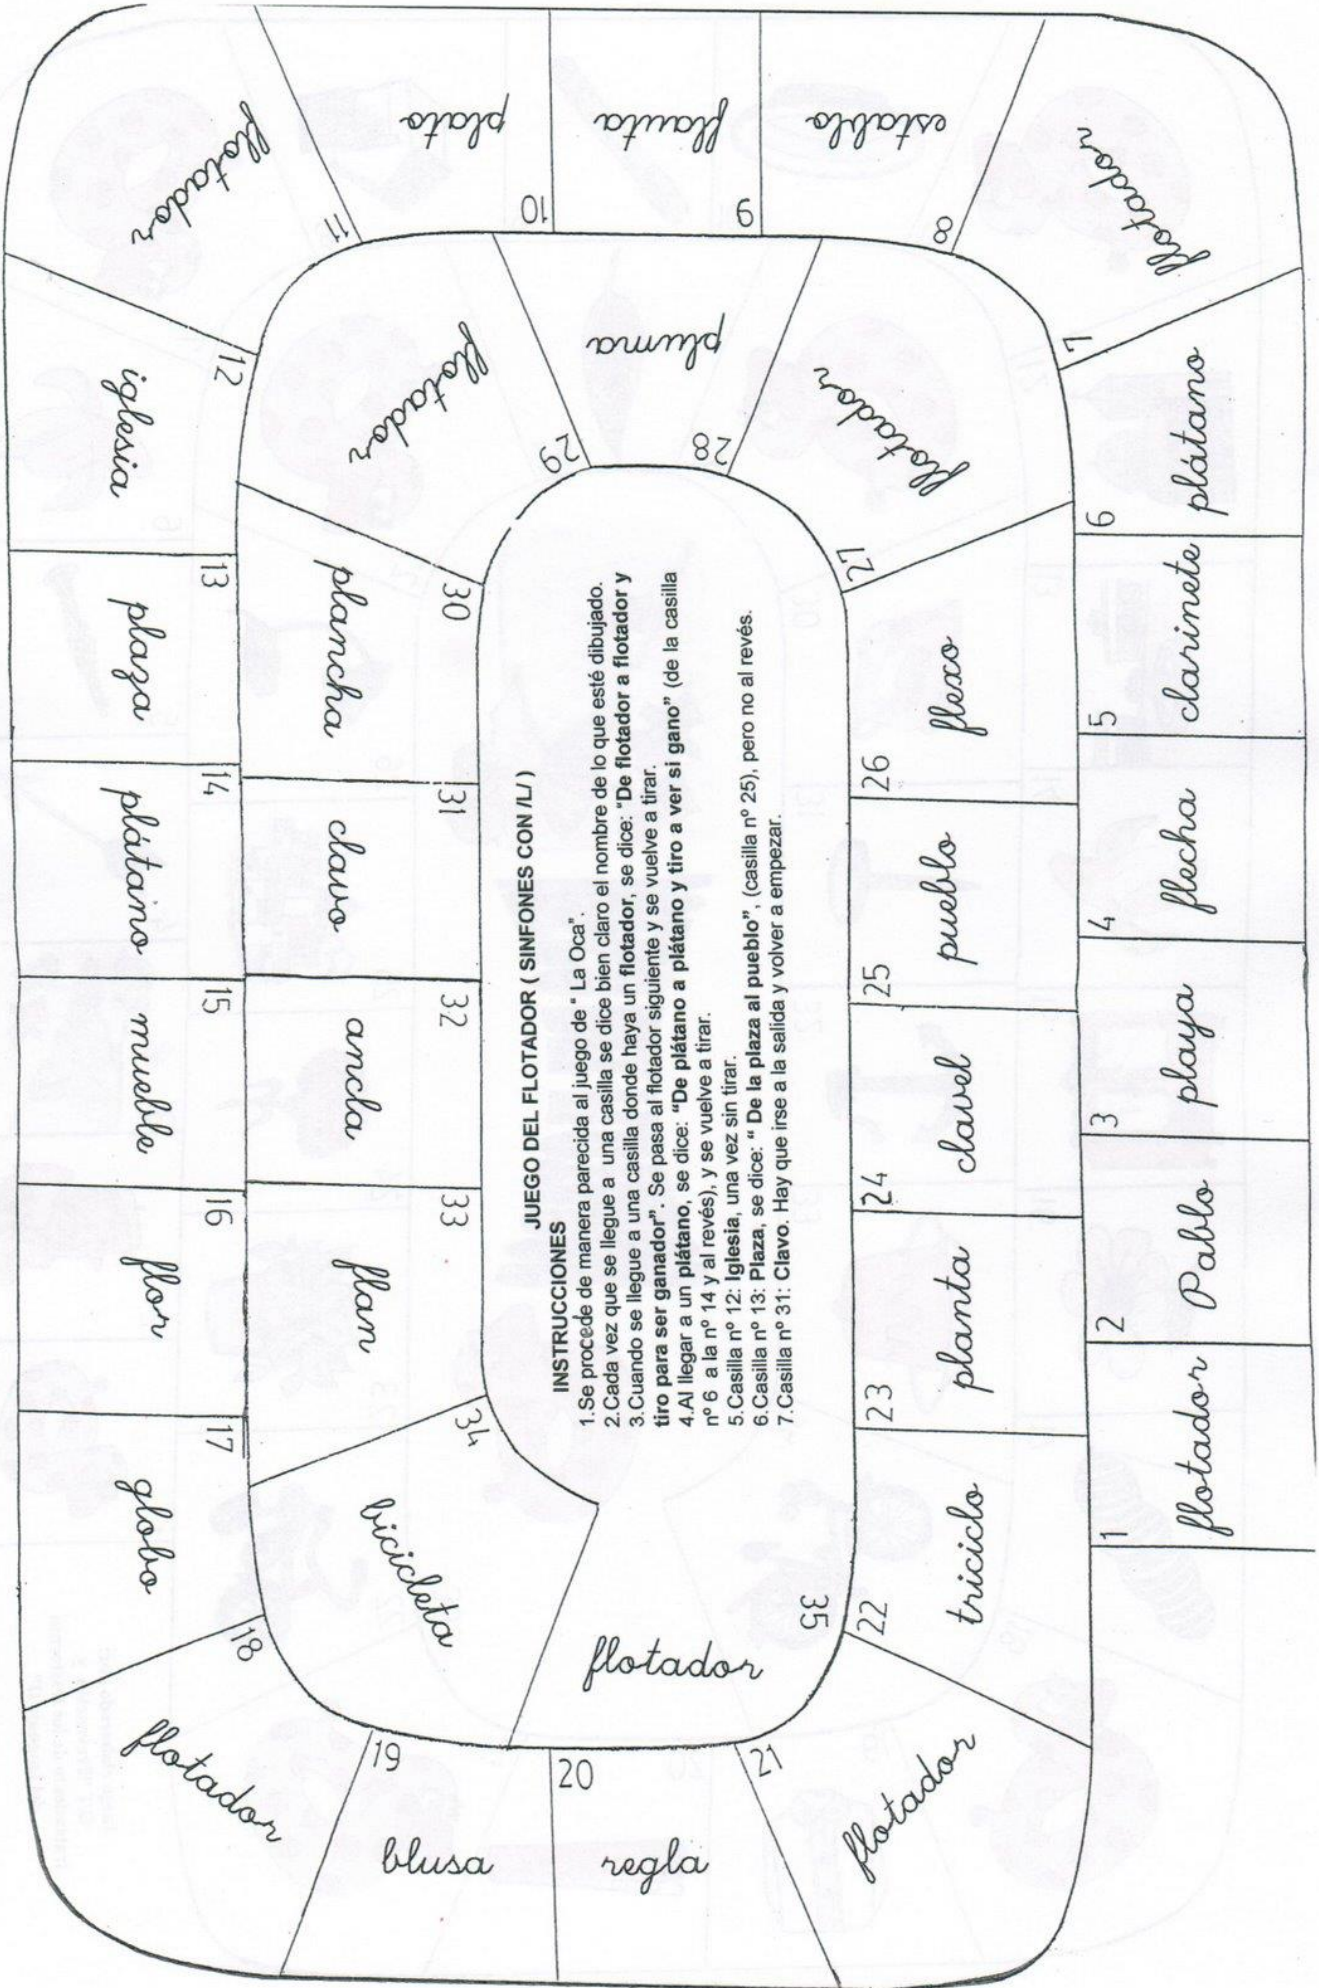 JUEGO DEL FLOTADOR ( SINFONES CON /L/ )
INSTRUCCIONES
1.Se procede de manera parecida al juego de " La Oca".
2.Cada vez que se llegue a una casilla se dice bien claro el nombre de lo que esté dibujado.
3.Cuando se llegue a una casilla donde haya un flotador, se dice: "De flotador a flotador y
tiro para ser ganador". Se pasa al flotador siguiente y se vuelve a tirar.
4.Al llegar a un plátano, se dice: "De plátano a plátano y tiro a ver si gano" (de la casilla
nº 6 a la nº 14 y al revés), y se vuelve a tirar.
5.Casilla nº 12: Iglesia, una vez sin tirar.
6.Casilla nº 13: Plaza, se dice: " De la plaza al pueblo", (casilla nº 25), pero no al revés.
7.Casilla nº 31: Clavo. Hay que irse a la salida y volver a empezar.
1 flotador
2 Pablo
3 playa
4 flecha
5 clarinete
6 plátano
7 flotador
8 establo
9 flauta
10 plato
11 flotador
12 iglessia
13 plaza
14 plátano
15 mueble
16 flor
17 globo
18 flotador
19 blusa
20 regla
21 flotador
22 triciclo
23 planta
24 clavel
25 pueblo
26 flexo
27 flotador
28 pluma
29 flotador
30 plancha
31 clavo
32 ancla
33 flan
34 bicicleta
35 flotador